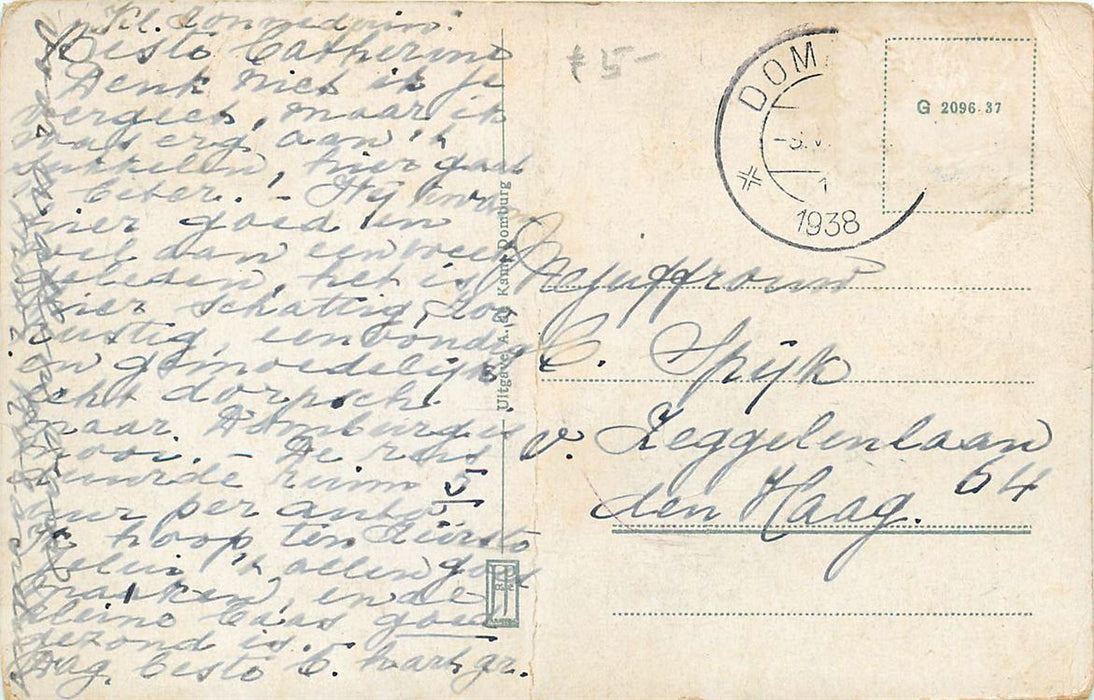 Beste Catherine
Denk niet ik je
vergeet, maar ik
was erg aan 't
sukkelen, hier gaat
't beter. - Wij kwam
hier goed en
wel aan een week
geleden, het is
hier schattig, zoo
rustig, eenvoudig
en gemoedelijk
echt dorpsch
maar Domburg is
mooi. - De reis
duurde ruim 5
uur per auto
Ik hoop ten Zeerste
jelui 't allen goed
maken, en de
kleine baas goed
gezond is.
Dag beste C. hart. gr.
Uitgave A. Kamp Domburg
£5-
DOM
1938
G 2096-37
Mejuffrouw
C. Spijk
v. Zeggelenlaan
64
den Haag.